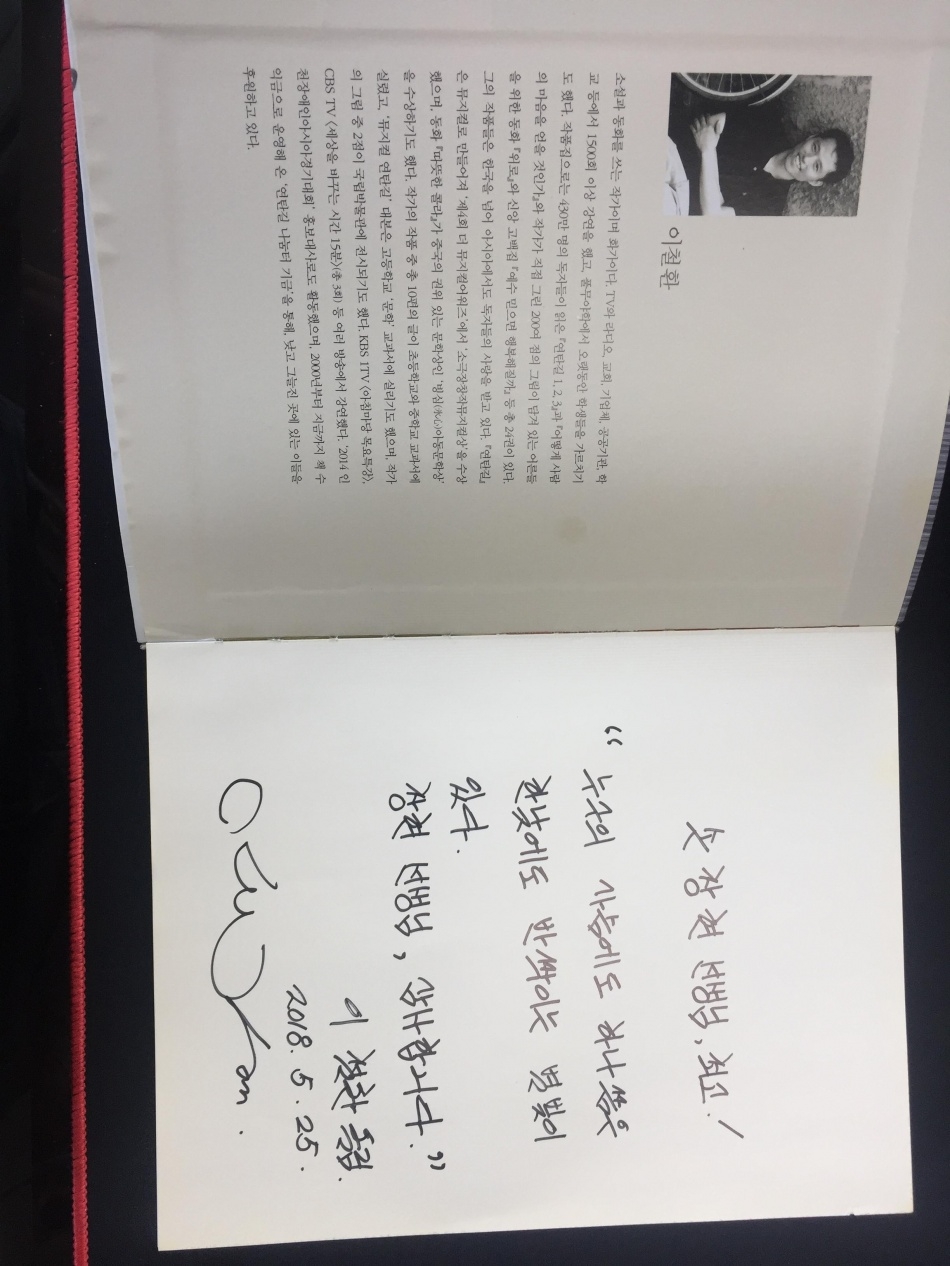 이철환
소설과 동화를 쓰는 작가이며 화가이다. TV와 라디오, 교회, 기업체, 공공기관, 학
교 등에서 1500회 이상 강연을 했고, 풀무야학에서 오랫동안 학생들을 가르치기
도 했다. 작품집으로는 430만 명의 독자들이 읽은 『연탄길 1, 2, 3』과 『어떻게 사람
의 마음을 얻을 것인가』와 작가가 직접 그린 200여 점의 그림이 담겨 있는 어른들
을 위한 동화 『위로』와 신앙 고백집 『예수 믿으면 행복해질까』 등 총 24권이 있다.
그의 작품들은 한국을 넘어 아시아에서도 독자들의 사랑을 받고 있다. 『연탄길』
은 뮤지컬로 만들어져 '제4회 더 뮤지컬어워즈'에서 '소극장창작뮤지컬상'을 수상
했으며, 동화 『따뜻한 콜라』가 중국의 권위 있는 문학상인 '빙심(氷心)아동문학상'
을 수상하기도 했다. 작가의 작품 중 총 10편의 글이 초등학교와 중학교 교과서에
실렸고, '뮤지컬 연탄길' 대본은 고등학교 '문학' 교과서에 실리기도 했으며, 작가
의 그림 중 2점이 국립박물관에 전시되기도 했다. KBS 1TV 〈아침마당 목요특강〉,
CBS TV 〈세상을 바꾸는 시간 15분〉(총 3회) 등 여러 방송에서 강연했다. '2014 인
천장애인아시아경기대회' 홍보대사로도 활동했으며, 2000년부터 지금까지 책 수
익금으로 운영해 온 '연탄길 나눔터 기금'을 통해, 낮고 그늘진 곳에 있는 이들을
후원하고 있다.
장현 선생님, 최고!
“누구의 가슴에도 하나쯤은
한낮에도 반짝이는 별빛이
있다.
장현 선생님, 감사합니다.”
이철환 드림.
2018. 5. 25.